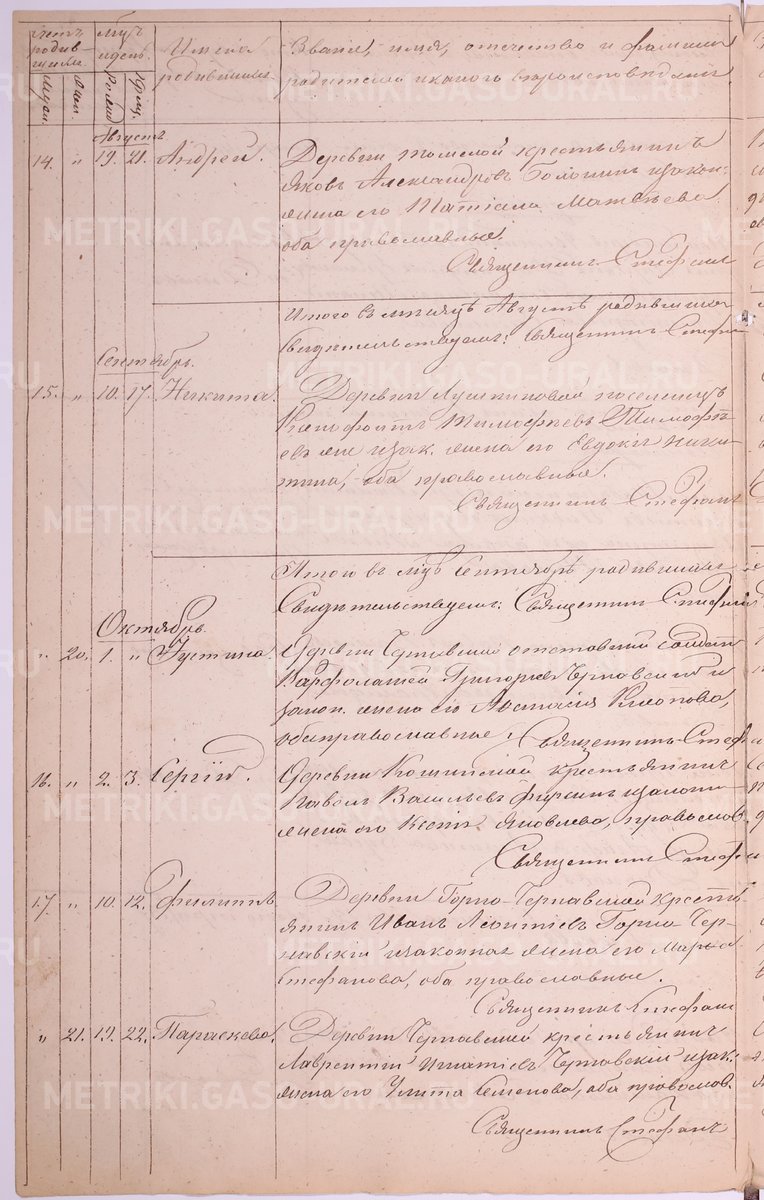 Счетъ родив-шихся
Муж.
Жен.
Мц и день
рожд.
крещ.
Имена родившихся.
Званіе, имя, отчество и фамилія
родителей и какого вѣроисповѣданія
Августъ
14. „ 19. 21. Андрей.
Деревни крестьянинъ
Яковъ Александровъ и закон.
жена его Татіана Матѳѣева
оба православные.
Священникъ Стефанъ
Итого въ мѣсяцѣ Августѣ родившихся
Свидѣтельствуемъ: Священникъ Стефан
Сентябрь.
15. „ 10. 17. Никита.
Деревни поселенецъ
Тимофѣевъ Тимофѣ-
евъ же и зак. жена его Евдокія Ники-
тина, оба православные.
Священникъ Стефанъ
Итого въ мцѣ Сентябрѣ родившихся
Свидѣтельствуемъ: Священникъ Стефан
Октябрь.
„ 20. 1. „ Іустина.
Деревни Чернавской отставной солдатъ
Варфоломей Григорьев Чернавскій и
закон. жена его Анастасія
оба православные. Священникъ Стеф
16. „ 2. 3. Сергій.
Деревни крестьянинъ
Павелъ Васильевъ Фирсинъ и закон.
жена его Яковлева, православ.
Священникъ Стефа
17. „ 10. 12. Филиппъ
Деревни Горно-Чернавской кресть-
янинъ Иванъ Леонтіевъ Горно-Чер-
навскій и законная жена его Марѳа
Стефанова, оба православные.
Священникъ Стефан
„ 21. 19. 22. Параскева.
Деревни Чернавской крестьянинъ
Лаврентій Игнатіевъ Чернавскій и зак.
жена его Улита Семенова, оба православ.
Священникъ Стефанъ
METRIKI.GASO-URAL.RU